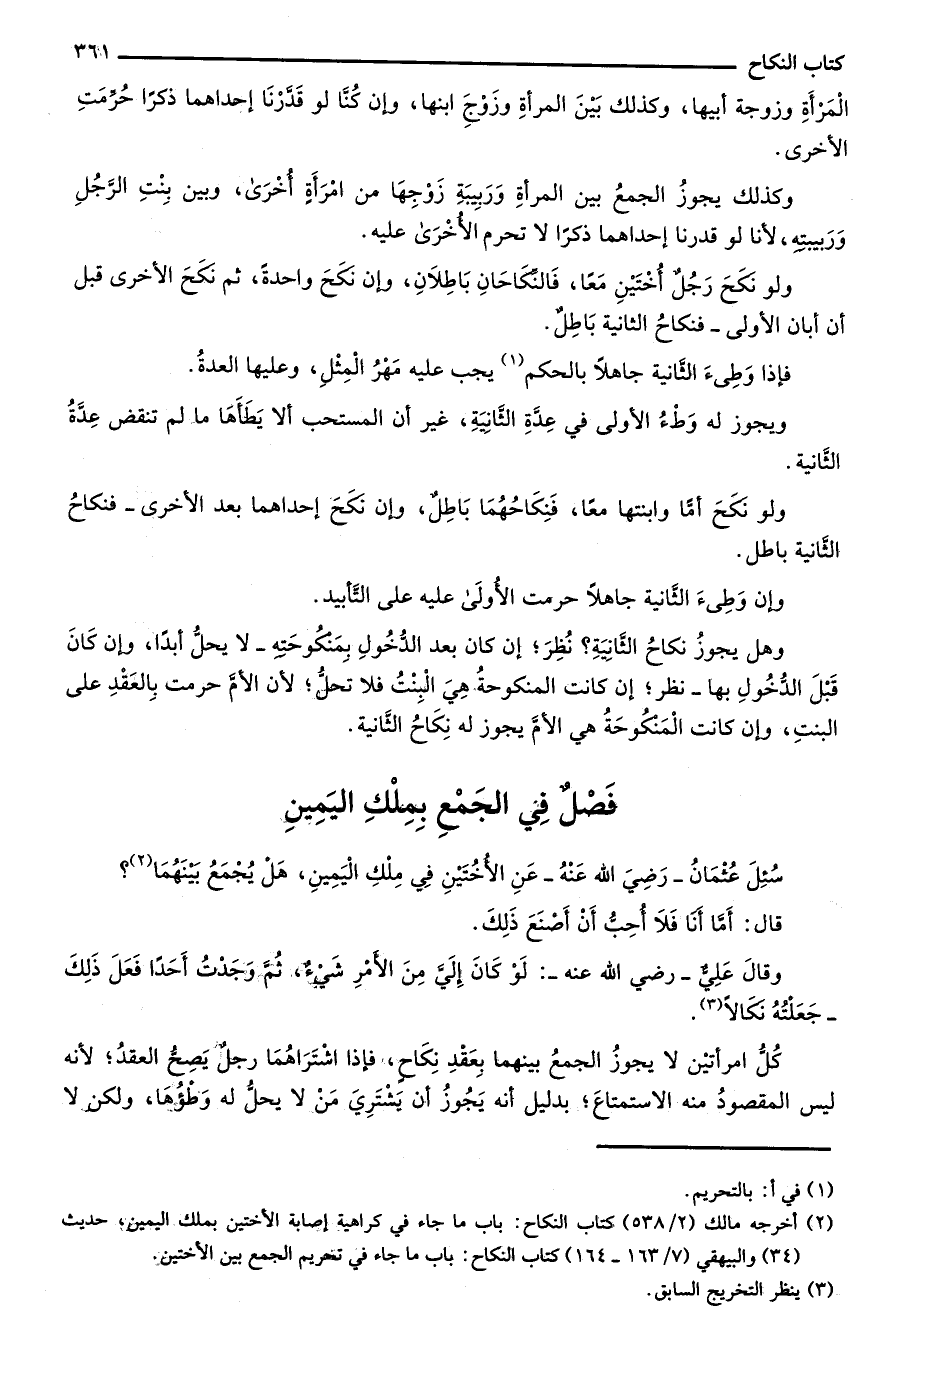 كتاب النكاح ٣٦١
الْمَرْأَةِ وزوجة أبيها، وكذلك بَيْنَ المرأةِ وزَوْجِ ابنها، وإن كُنَّا لو قَدَّرْنَا إحداهما ذكرًا حُرِّمَتِ
الأخرى.
وكذلك يجوزُ الجمعُ بين المرأةِ وَرَبِيبَةِ زَوْجِهَا من امْرَأَةٍ أُخْرَىٰ، وبين بِنْتِ الرَّجُلِ
وَرَبيبتِهِ، لأنا لو قدرنا إحداهما ذكرًا لا تحرم الأُخْرَىٰ عليه.
ولو نكَحَ رَجُلٌ أُخْتَيْنِ مَعًا، فَالنِّكَاحَانِ بَاطِلَانِ، وإن نكَحَ واحدةً، ثم نكَحَ الأخرى قبل
أن أبان الأولى ـ فنكاحُ الثانية بَاطِلٌ.
فإذا وَطِىءَ الثَّانية جاهلاً بالحكم(١) يجب عليه مَهْرُ الْمِثْلِ، وعليها العدةُ.
ويجوز له وَطْءُ الأولى في عِدَّةِ الثَّانِيَةِ، غير أن المستحب ألا يَطَأَهَا ما لم تنقض عِدَّةُ
الثَّانية.
ولو نَكَحَ أمًّا وابنتها معًا، فَنِكَاحُهُمَا بَاطِلٌ، وإن نَكَحَ إحداهما بعد الأخرى ـ فنكاحُ
الثَّانية باطل.
وإن وَطِىءَ الثَّانية جاهلاً حرمت الأُولَىٰ عليه على التَّأبيد.
وهل يجوزُ نكاحُ الثَّانِيَةِ؟ نُظِرَ؛ إن كان بعد الدُّخُولِ بِمَنْكُوحَتِهِ ـ لا يحلُّ أبدًا، وإن كَانَ
قَبْلَ الدُّخُولِ بها ـ نظر؛ إن كانت المنكوحةُ هِيَ الْبِنْتُ فلا تحلُّ؛ لأن الأمَّ حرمت بِالعَقْدِ على
البنتِ، وإن كانت الْمَنْكُوحَةُ هي الأمَّ يجوز له نِكَاحُ الثَّانية.
فَصْلٌ فِي الجَمْعِ بِمِلْكِ اليَمِينِ
سُئِلَ عُثْمَانُ ـ رَضِيَ الله عَنْهُ ـ عَنِ الأُخْتَيْنِ فِي مِلْكِ الْيَمِينِ، هَلْ يُجْمَعُ بَيْنَهُمَا(٢)؟
قال: أَمَّا أَنَا فَلَا أُحِبُّ أَنْ أَصْنَعَ ذَلِكَ.
وقالَ عَلِيٌّ ـ رضي الله عنه ـ: لَوْ كَانَ إِلَيَّ مِنَ الأَمْرِ شَيْءٌ، ثُمَّ وَجَدْتُ أَحَدًا فَعَلَ ذَلِكَ
ـ جَعَلْتُهُ نَكَالاً(٣).
كُلُّ امرأتيْن لا يجوزُ الجمعُ بينهما بِعَقْدِ نِكَاحٍ، فإذا اشْتَرَاهُمَا رجلٌ يَصِحُّ العقدُ؛ لأنه
ليس المقصودُ منه الاستمتاعَ؛ بدليل أنه يَجُوزُ أن يَشْتَرِيَ مَنْ لا يحلُّ له وَطْؤُهَا، ولكن لا
(١) في أ: بالتحريم.
(٢) أخرجه مالك (٢/ ٥٣٨) كتاب النكاح: باب ما جاء في كراهية إصابة الأختين بملك اليمين، حديث
(٣٤) والبيهقي (٧/ ١٦٣ ـ ١٦٤) كتاب النكاح: باب ما جاء في تحريم الجمع بين الأختين.
(٣) ينظر التخريج السابق.